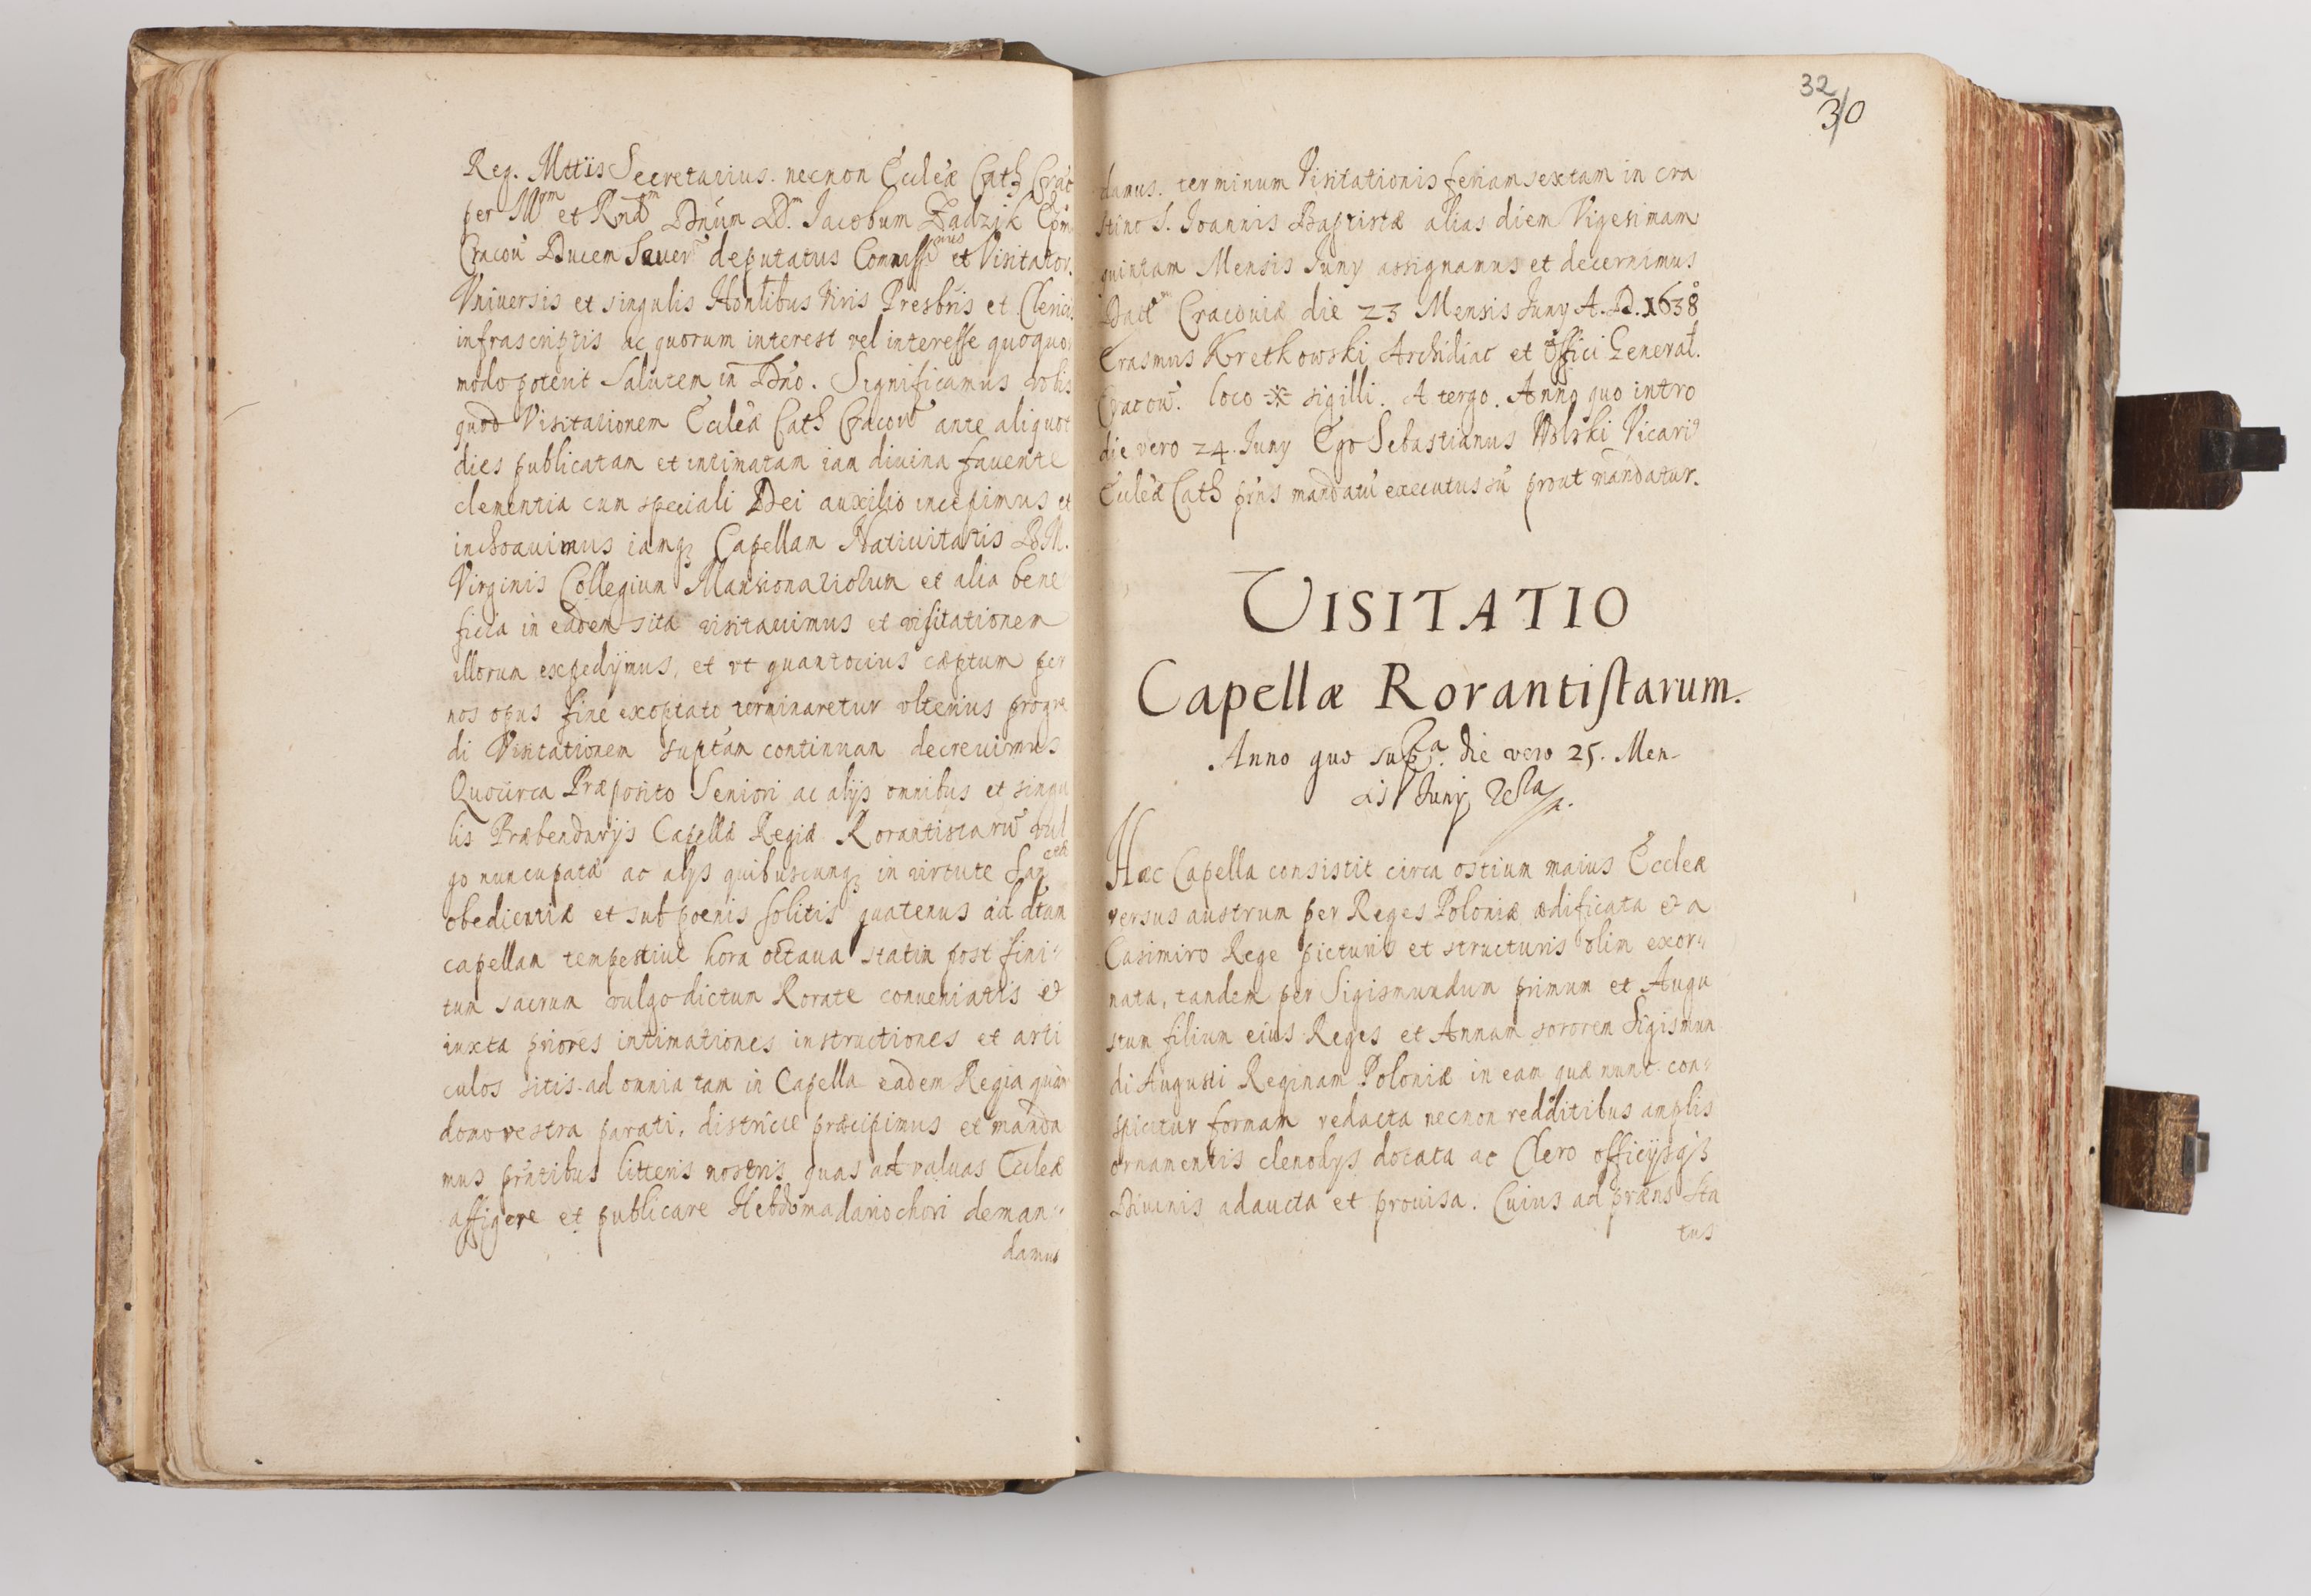 Reg. Mttis Secretarius. necnon Eccleæ Cath Crac
per Mum et Rndm Dnum D. Jacobum Zadzik Epm
Cracov Ducem Sever deputatus Commiss et Visitator.
Vniversis et singulis Honlibus Viris Presbris et Clericis
infrascriptis ac quorum interest vel interesse quoquo
modo poterit Salutem in Dno. Significamus vobis
quod Visitationem Eccleæ Cath Cracov ante aliquot
dies publicatam et intimatam iam diuina fauente
clementia cum speciali Dei auxilio incepimus et
inchoauimus iamq Capellam Natiuitatis B. M.
Virginis Collegium Mansionariorum et alia bene
ficia in eadem sita visitauimus et visitationem
illorum expedijmus, et vt quantocius cæptum per
nos opus fine exoptato terminaretur vlterius progre
di Visitationem suptam continuan decreuimus
Quocirca Præposito Seniori ac alijs omnibus et singu
lis Præbendarijs Capellæ Regiæ Rorantistarū vul
go nuncupatæ ac alys quibuscunq in virtute Sanctæ
obedientiæ et sub poenis solitis quatenus ad dtam
capellam tempestiue hora octaua statim post fini-
tum sacrum vulgo dictum Rorate conueniatis et
iuxta priores intimationes instructiones et arti
culos sitis ad omnia tam in Capella eadem Regia quàm
domo vestra parati, districte præcipimus et manda
mus pntibus litteris nostris quas ad valuas Eccleæ
affigere et publicare Hebdomadario chori deman-
damus
32
30
damus. terminum Visitationis feriam sextam in cra
stino S. Joannis Baptistæ alias diem Vigesimam
quintam Mensis Juny assignamus et decernimus
Datt Cracouiæ die 23 Mensis Juny A. D. 1638
Erasmus Kretkowski Archidiac et Offici General.
Cracov. loco * sigilli. A tergo. Anno quo intro
die vero 24. Juny Ego Sebastianus Wolski Vicari9
Eccleæ Cath pns mandatū executus sū prout mandatur.
VISITATIO
Capellæ Rorantistarum.
Anno quo supra. die vero 25. Men-
sis Juny
Hæc Capella consistit circa ostium maius Eccleæ
versus austrum per Reges Poloniæ ædificata et a
Casimiro Rege picturis et structuris olim exor-
nata, tandem per Sigismundum primum et Augu
stum filium eius Reges et Annam sororem Sigismun
di Augusti Reginam Poloniæ in eam quæ nunc con-
spicitur formam redacta necnon redditibus amplis
ornamentis clenodys dotata ac Clero officijsq3
Diuinis adaucta et prouisa. Cuius ad præns Sta
tus